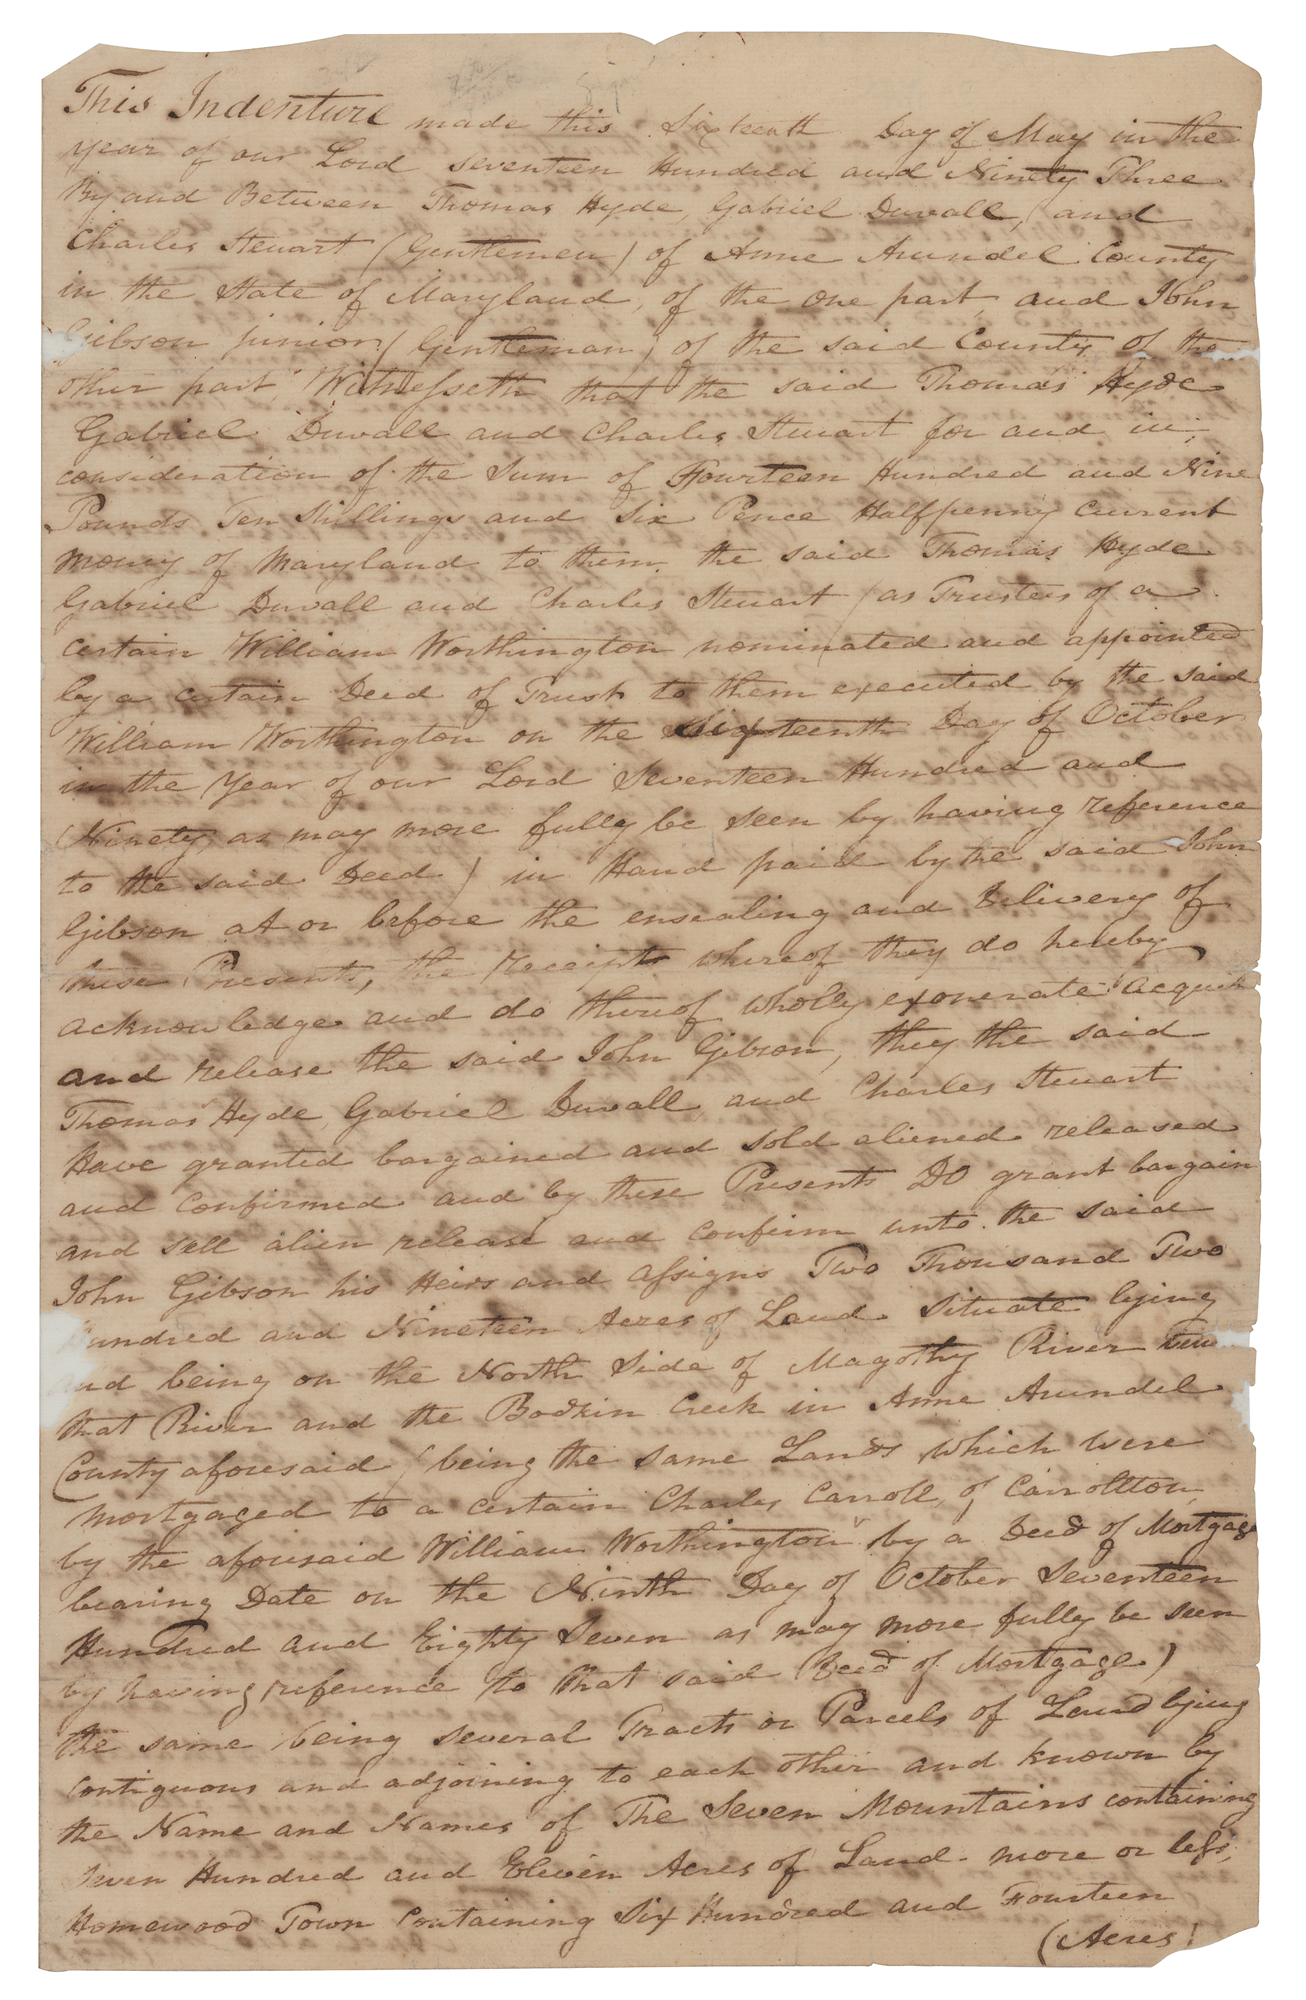 This Indenture made this Sixteenth Day of May in the
year of our Lord seventeen Hundred and Ninety Three
By and Between Thomas Hyde, Gabriel Duvall, and
Charles Steuart (Gentlemen) of Anne Arundel County
in the State of Maryland, of the one part, and John
Gibson junior (Gentleman) of the said County of the
other part, Witnesseth that the said Thomas Hyde
Gabriel Duvall and Charles Steuart for and in
consideration of the Sum of Fourteen Hundred and Nine
Pounds Ten Shillings and Six Pence Halfpenny Current
money of Maryland to them the said Thomas Hyde
Gabriel Duvall and Charles Steuart (as Trustees of a
certain William Worthington nominated and appointed
by a certain Deed of Trust to them executed by the said
William Worthington on the Sixteenth Day of October
in the Year of our Lord Seventeen Hundred and
Ninety, as may more fully be seen by having reference
to the said Deed) in Hand paid by the said John
Gibson at or before the ensealing and Delivery of
these Presents, the receipt whereof they do hereby
acknowledge and do thereof wholly exonerate acquit
and release the said John Gibson, they the said
Thomas Hyde, Gabriel Duvall, and Charles Steuart
Have granted bargained and sold aliened released
and confirmed and by these Presents DO grant bargain
and sell alien release and confirm unto the said
John Gibson his Heirs and assigns Two Thousand Two
Hundred and Nineteen Acres of Land Situate lying
and being on the North Side of Magothy River
that River and the Bodkin Creek in Anne Arundel
County aforesaid (being the same Lands which were
mortgaged to a certain Charles Carroll, of Carrollton,
by the aforesaid William Worthington by a Deed of Mortgage
bearing Date on the Ninth Day of October Seventeen
Hundred and Eighty Seven as may more fully be seen
by having reference to that said Deed of Mortgage)
the same being several Tracts or Parcels of Land lying
contiguous and adjoining to each other and known by
the Name and Names of The Seven Mountains containing
seven Hundred and Eleven Acres of Land more or less,
Homewood Town Containing Six Hundred and Fourteen
(Acres